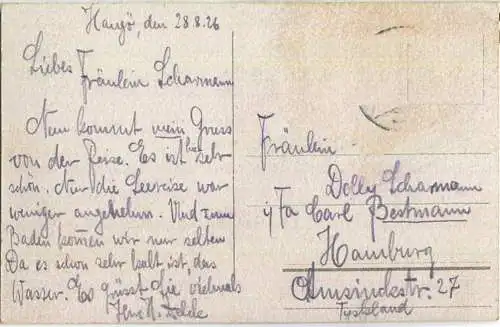 Hangö, den 28.8.26
Liebes
Fräulein Scharmann
Nun kommt mein Gruss
von der Reise. Es ist hier sehr
schön. Nur die Seereise war
weniger angenehm. Und zum
Baden kom̄en wir nur selten
Da es schon sehr kalt ist, das
Wasser. Es grüsst Sie vielmals
Ihre
Fräulein
Dolly Scharmann
i/Fa Carl Bestmann
Hamburg
Amsinckstr. 27
Tyskland